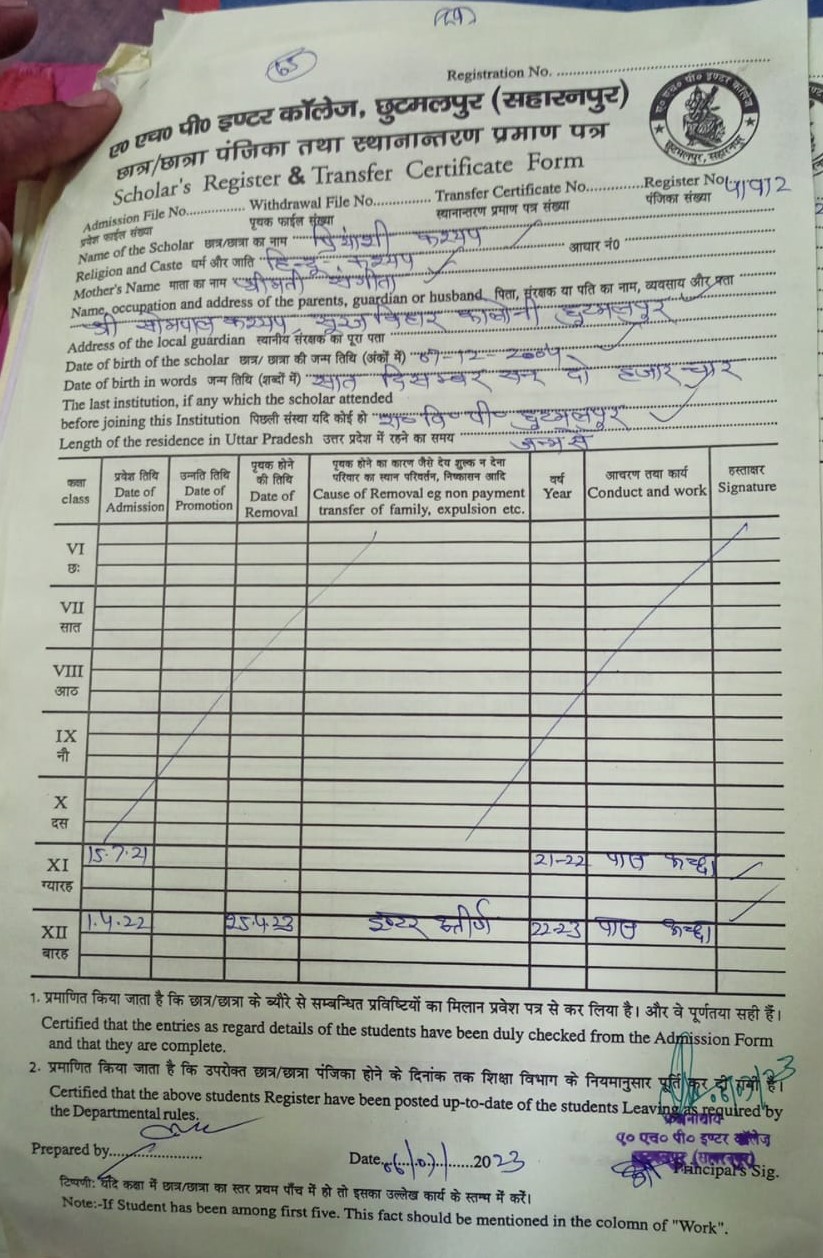 65
Registration No. ....................
ए० एच० पी० इण्टर कॉलेज, छुटमलपुर (सहारनपुर)
छात्र/छात्रा पंजिका तथा स्थानान्तरण प्रमाण पत्र
Scholar's Register & Transfer Certificate Form
ए० एच० पी० इण्टर कॉलेज
छुटमलपुर, सहारनपुर
Admission File No.............. Withdrawal File No............. Transfer Certificate No............. Register No.
प्रवेश फाईल संख्या पृथक फाईल संख्या स्थानान्तरण प्रमाण पत्र संख्या पंजिका संख्या
Name of the Scholar छात्र/छात्रा का नाम कश्यप आधार नं०
Religion and Caste धर्म और जाति हिन्दू - कश्यप
Mother's Name माता का नाम श्रीमती संगीता
Name, occupation and address of the parents, guardian or husband पिता, संरक्षक या पति का नाम, व्यवसाय और पता
श्री सोमपाल कश्यप, सूरज विहार कालोनी छुटमलपुर
Address of the local guardian स्थानीय संरक्षक का पूरा पता
Date of birth of the scholar छात्र/ छात्रा की जन्म तिथि (अंकों में) 07-12-2004
Date of birth in words जन्म तिथि (शब्दों में) सात दिसम्बर सन दो हजार चार
The last institution, if any which the scholar attended
before joining this Institution पिछली संस्था यदि कोई हो छुटमलपुर
Length of the residence in Uttar Pradesh उत्तर प्रदेश में रहने का समय जन्म से
कक्षा class
प्रवेश तिथि Date of Admission
उन्नति तिथि Date of Promotion
पृथक होने की तिथि Date of Removal
पृथक होने का कारण जैसे देय शुल्क न देना
परिवार का स्थान परिवर्तन, निष्कासन आदि
Cause of Removal eg non payment
transfer of family, expulsion etc.
वर्ष Year
आचरण तथा कार्य Conduct and work
हस्ताक्षर Signature
VI
छः
VII
सात
VIII
आठ
IX
नौ
X
दस
XI 15.7.21 21-22 पास अच्छा
ग्यारह
XII 1.4.22 25.4.23 इण्टर उत्तीर्ण 22-23 पास अच्छा
बारह
1. प्रमाणित किया जाता है कि छात्र/छात्रा के ब्यौरे से सम्बन्धित प्रविष्टियों का मिलान प्रवेश पत्र से कर लिया है। और वे पूर्णतया सही हैं।
Certified that the entries as regard details of the students have been duly checked from the Admission Form
and that they are complete.
2. प्रमाणित किया जाता है कि उपरोक्त छात्र/छात्रा पंजिका होने के दिनांक तक शिक्षा विभाग के नियमानुसार पूर्ति कर दी गयी है।
Certified that the above students Register have been posted up-to-date of the students Leaving as required by
the Departmental rules.
प्रधानाचार्य
ए० एच० पी० इण्टर कॉलेज
छुटमलपुर (सहारनपुर)
Prepared by.................... Date 06/07/ 2023 Principal's Sig.
टिप्पणी: यदि कक्षा में छात्र/छात्रा का स्तर प्रथम पाँच में हो तो इसका उल्लेख कार्य के स्तम्भ में करें।
Note:-If Student has been among first five. This fact should be mentioned in the colomn of "Work".